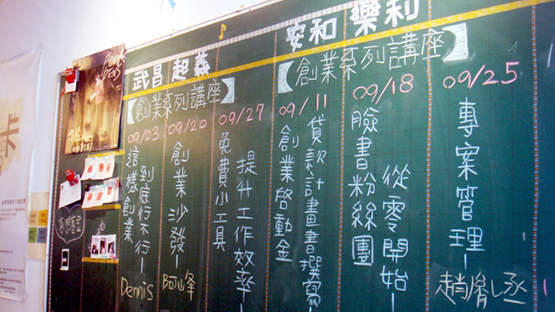 武昌 起義
【創業系列講座】
09/03
這樣創業
到底行不行—
Dennis
09/20
創業沙發—
09/27
免費小工具
提升工作效率—
安和 樂利
【創業系列講座】
09/11
創業啟動金
貸款計畫書撰寫—
09/18
臉書粉絲團
從零開始—
09/25
專案管理—
趙胤丞
卡